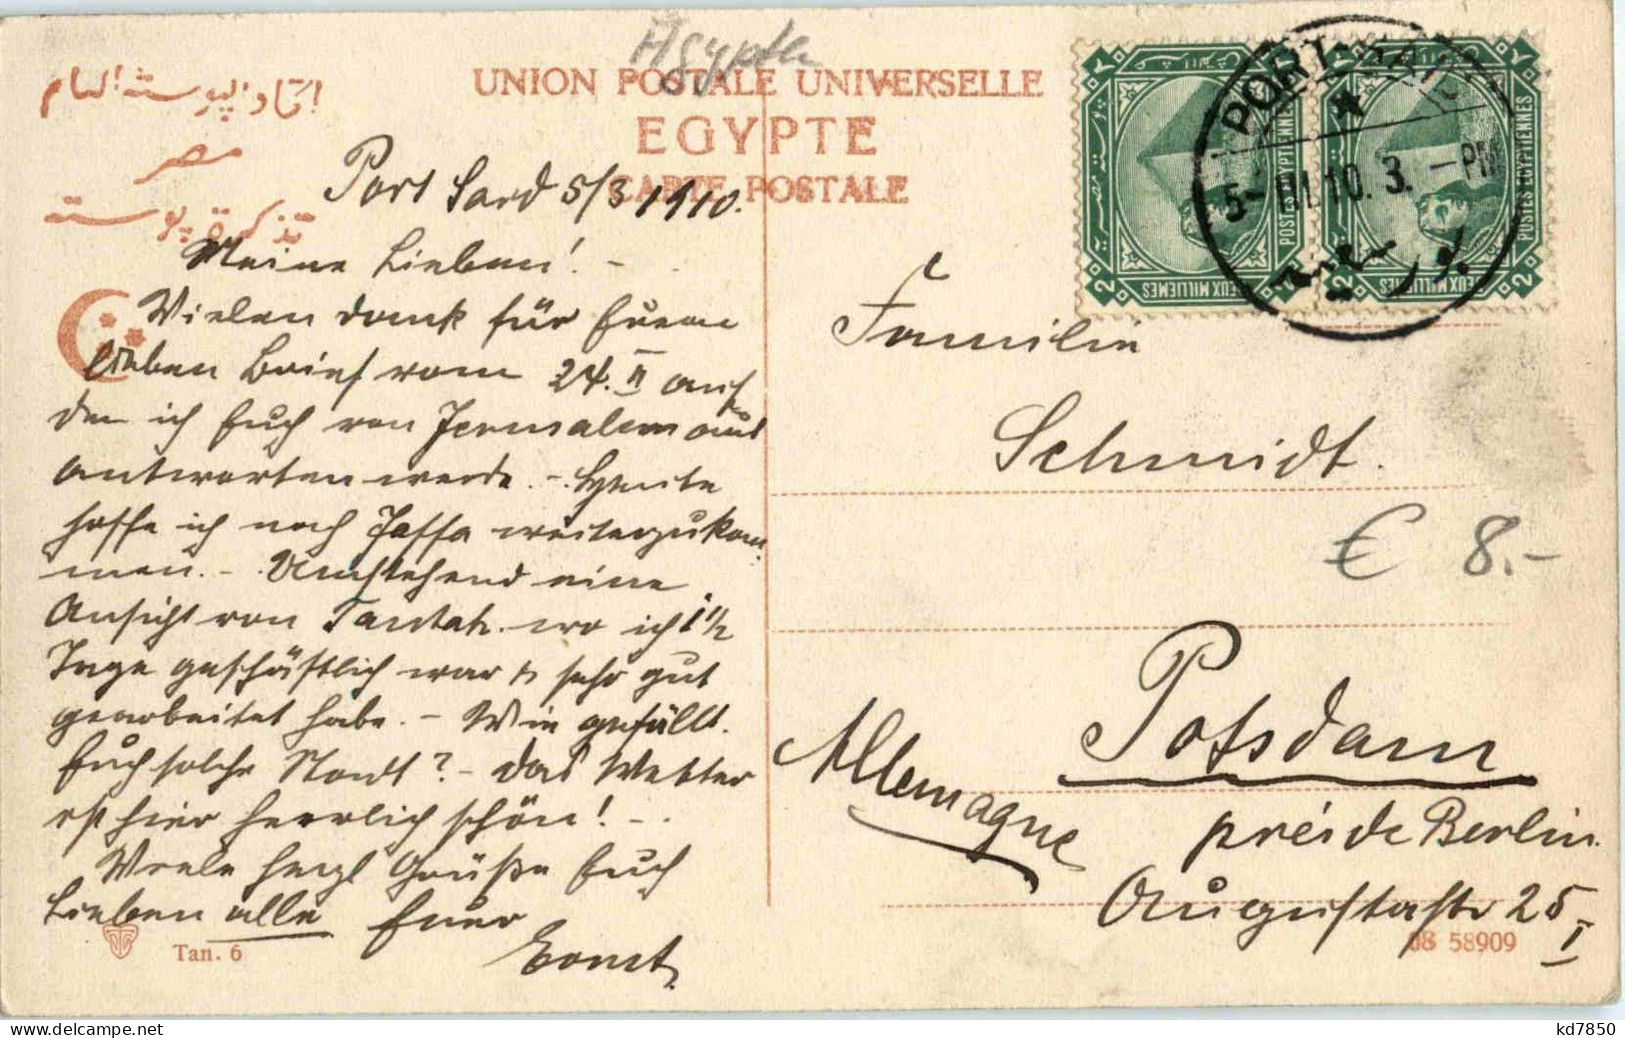 Agypten
اتحاد البوسته العام
مصر
تذكرة بوسته
UNION POSTALE UNIVERSELLE
EGYPTE
CARTE POSTALE
Port Said 5/3 1910.
Meine Lieben! -
Vielen Dank für Euern
lieben Brief vom 24. II auf
den ich Euch von Jerusalem aus
antworten werde. - Heute
hoffe ich nach Jaffa weiterzukom
men. - Umstehend eine
Ansicht von Tantah. wo ich 1 1/2
Tage geschäftlich war & sehr gut
gearbeitet habe. - Wie gefällt
Euch solche Stadt? - Das Wetter
ist hier herrlich schön! - .
Viele herzl Grüße Euch
Lieben alle Euer
Ernst
Tan. 6
PORT-SAID
5-III.10. 3.-PM
بور سعيد
POSTES EGYPTIENNES
DEUX MILLIEMES
2
POSTES EGYPTIENNES
DEUX MILLIEMES
2
Familie
Schmidt.
€ 8.-
Potsdam
Allemagne
près de Berlin.
Augustastr 25 I
08 58909
kd7850